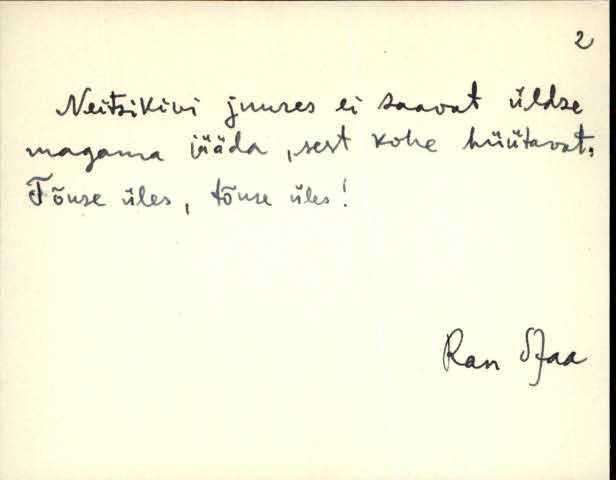 2
Neitsikivi juures ei saavat üldse
magama jääda, sest kohe hüütavat:
Tõuse üles, tõuse üles!
Ran Jaa